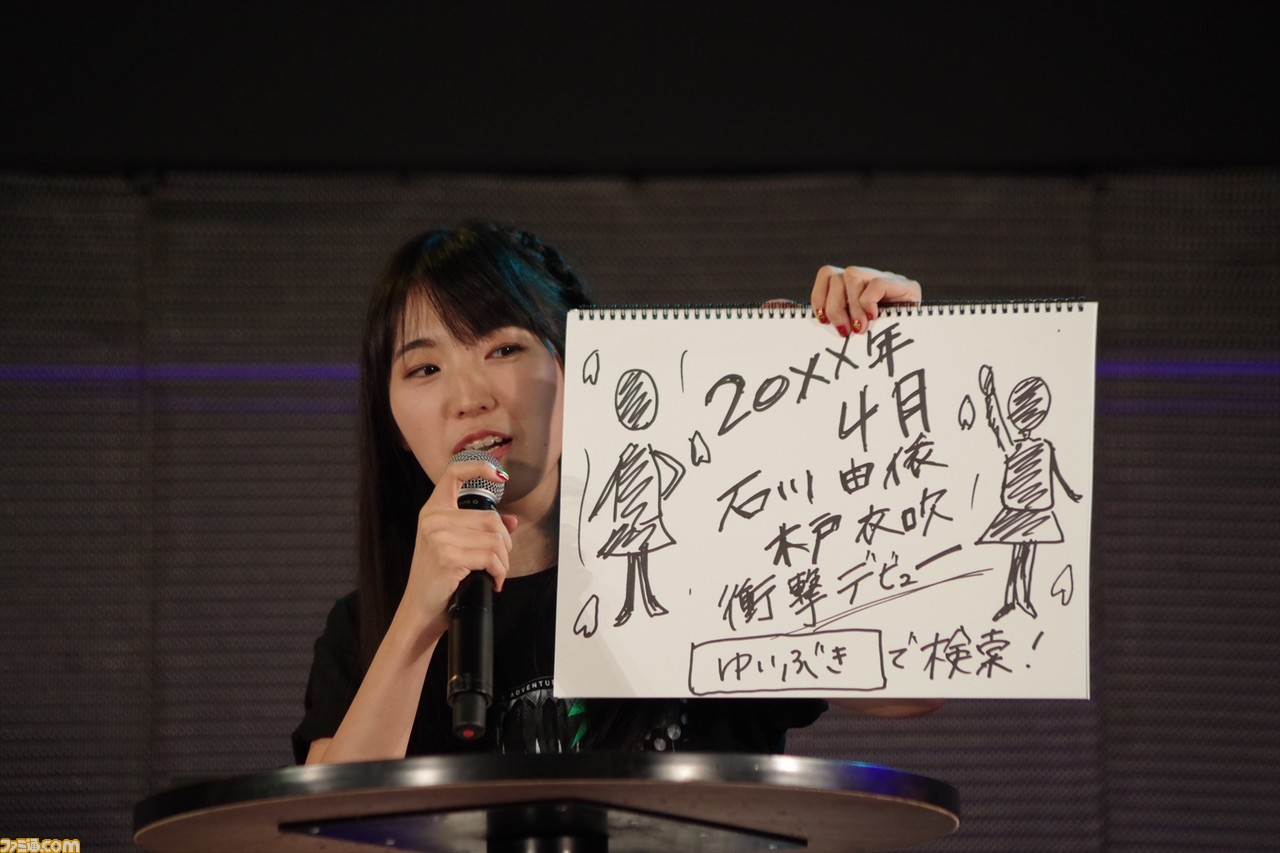 20××年
4月
石川由依
木戸衣吹
衝撃デビュー
ゆいぶき で検索!
ADVENTU
ファミ通.com